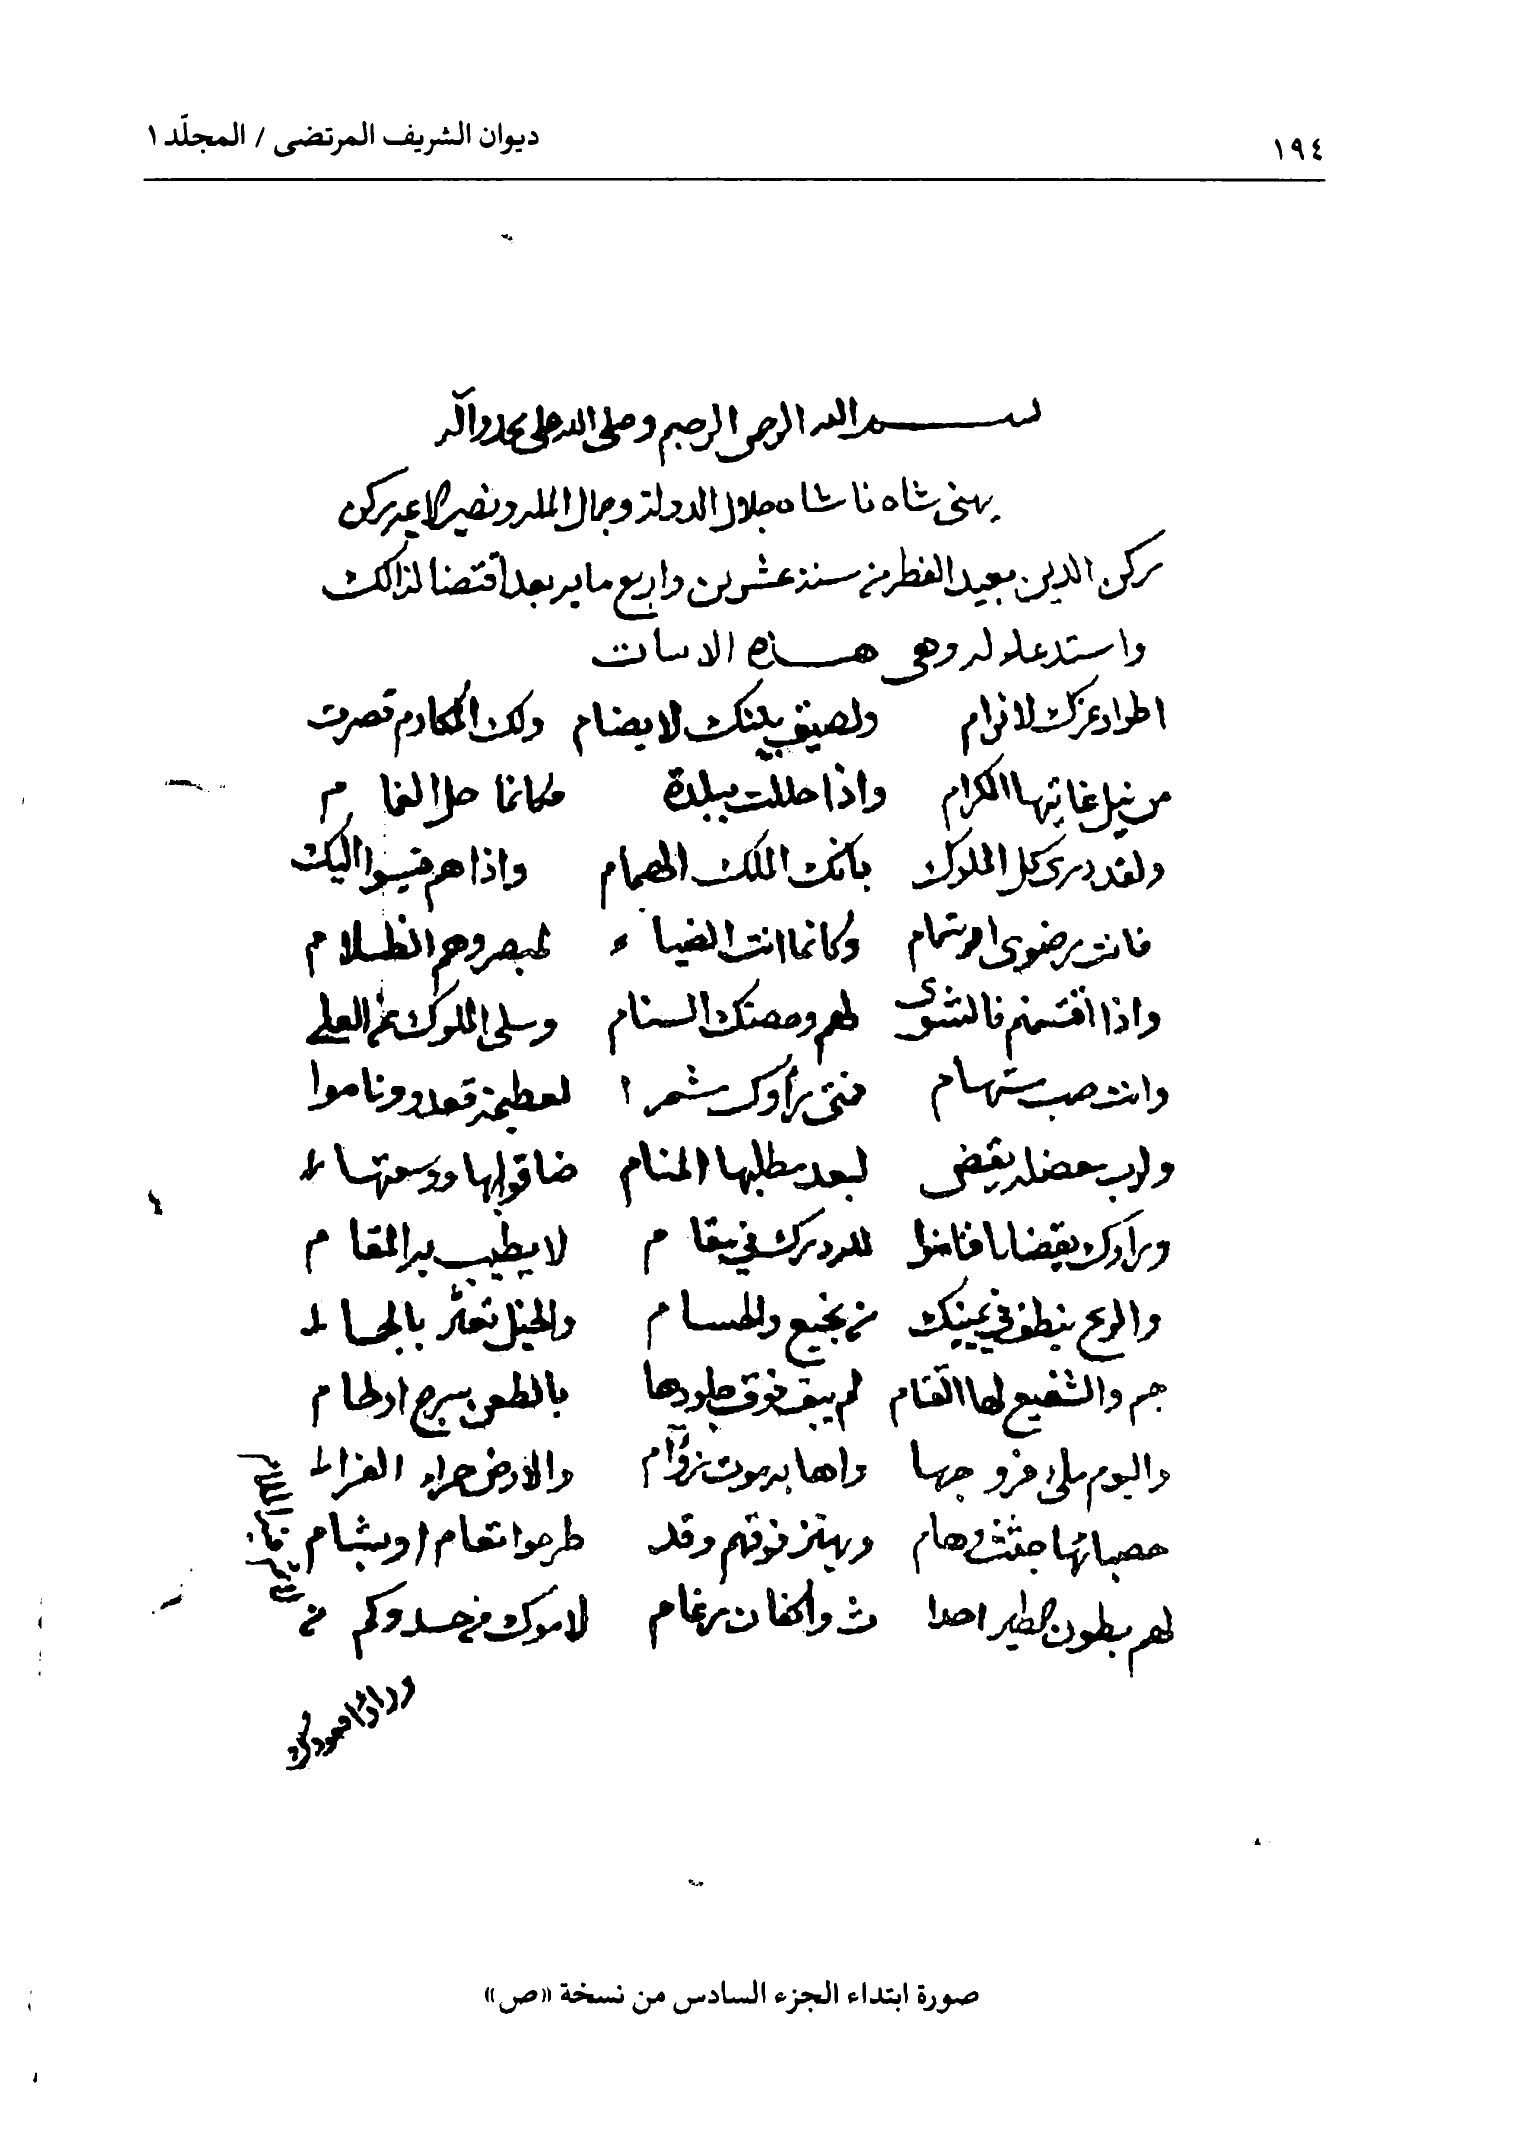 ١٩٤
ديوان الشريف المرتضى / المجلّد ١
بسم الله الرحمن الرحيم وصلى الله على محمد وآله
يهنى شاه نا شاه جلال الدولة وجمال المله ونصير ركن
ركن الدين بعيد الفطر من سنة عشرين واربع مايه بعد اقتضا لذالك
واستدعا له وهى هذه الابيات
اطواد عزك لا ترام ولصيق بيتك لا يضام ولك المكارم قصرت
من نيل غايتها الكرام واذا حللت ببلدة فكانما حل الغمام
ولقد درى كل الملوك بانك الملك الهمام واذا هم قيسوا اليك
فانت رضوى او شمام وكانما انت الضياء لمبصر وهم الظلام
واذا اقتسمتم فالشوى لهم وحصتك السنام وسلى الملوك عن العلى
وانت صب مستهام فمتى رأوك مشمرا لعظيمة قعدوا وناموا
ولرب معضله يقض لبعد مطلبها المنام ضاقوا بها ووسعتها
وراوك يقضانا فناموا لله درك في مقام لا يطيب به المقام
والرمح ينطف في يمينك من نجيع والحسام والخيل تعثر بالجما
جم والشفيع لها القتام لم يبق فوق جلودها بالطعن سرج او لجام
واليوم ملء فروجها واها به موت زؤام والارض حمراء القرا
حصباتها جثث وهام وبهتز فوقهم وقد طرحوا ثغام او بشام
لهم بطون الطير احدا ث واكفان رغام لاموك من حسد وكم من
صورة ابتداء الجزء السادس من نسخة «ص»